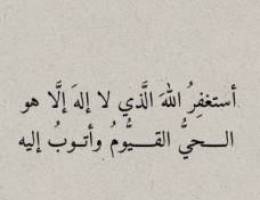 أستغفِرُ اللهَ الَّذي لا إلهَ إلَّا هو
الـــحيُّ القـــيُّومُ وأتــوبُ إليه